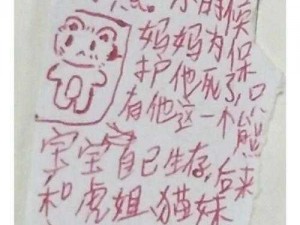 小的候
妈妈为保
护他死了,只
有他这一个熊
宝宝自己生存,后来
和虎姐、猫妹